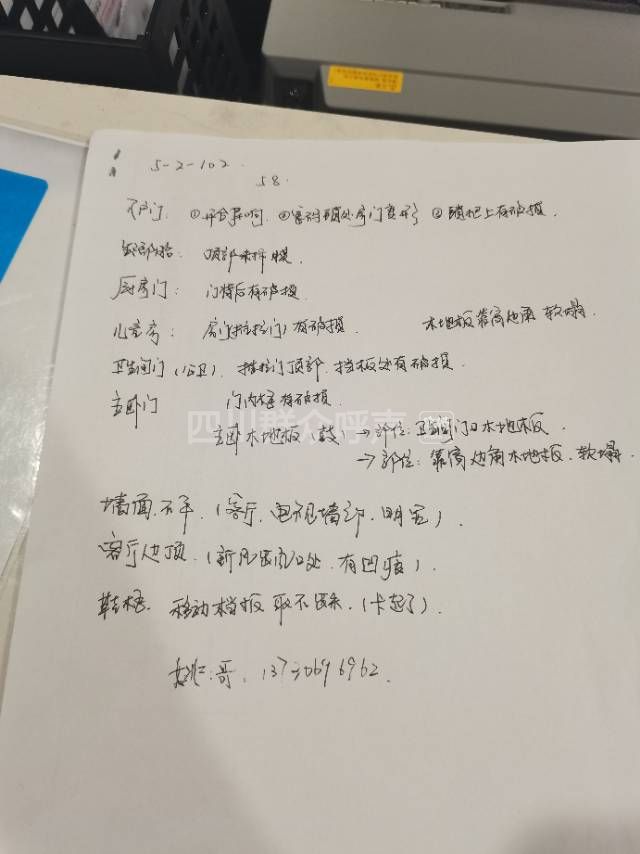 5-2-102
58.
入户门: ①开合异响. ②密码锁处房门变形 ③锁把上有破损.
顶部未撕膜.
厨房门: 门背后有破损.
儿童房: 房门有破损. 木地板靠窗边角 软塌.
卫生间门(公卫). 推拉门顶部. 挡板处有破损.
主卧门 门内有破损.
主卧木地板(鼓) → 部位: 卫生间门口木地板.
→ 部位: 靠窗边角木地板. 软塌.
墙面不平. (客厅. 电视墙部. 明显).
客厅边顶. (新风出风口处. 有凹痕).
鞋柜. 移动档板取不出来. (卡起了).
哥.
四川群众呼声